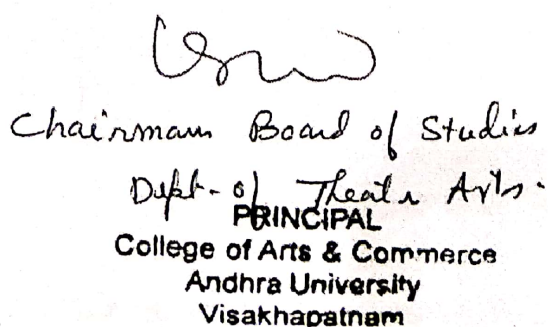 Chairman Board of Studies
Dept. of Theatre Arts.
PRINCIPAL
College of Arts & Commerce
Andhra University
Visakhapatnam